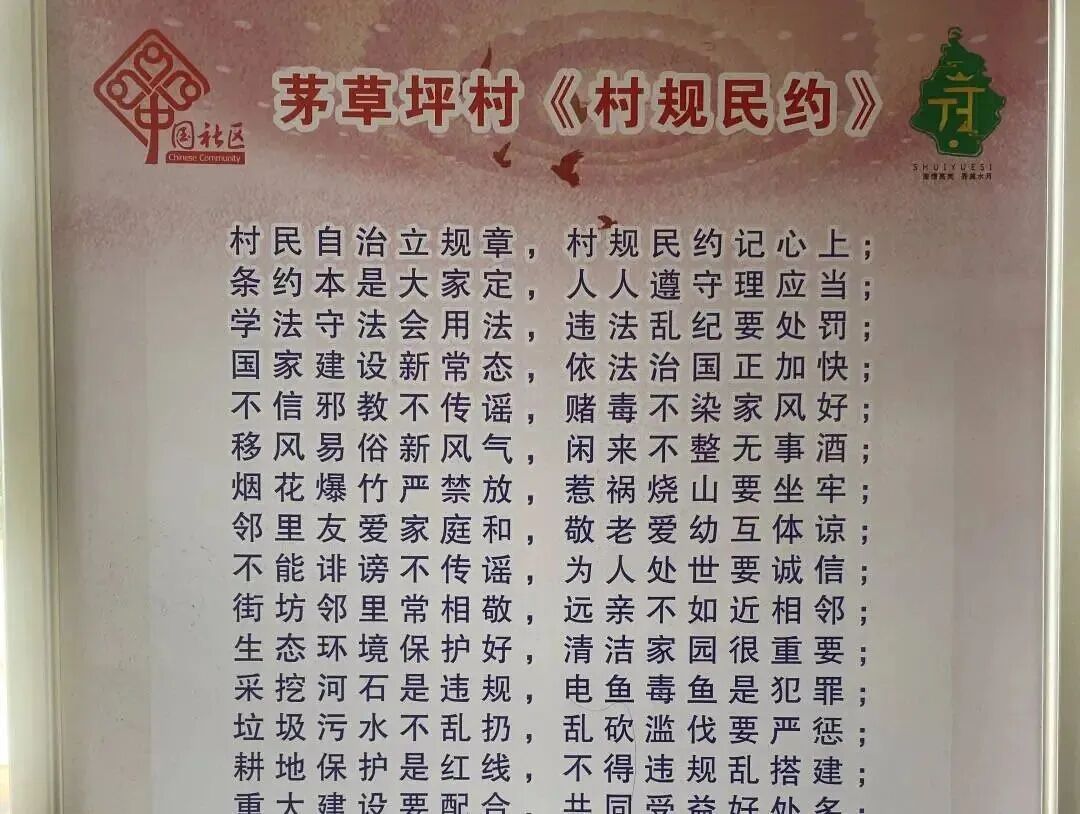 茅草坪村《村规民约》
中国社区
Chinese Community
SHUIYUESI
村民自治立规章，村规民约记心上；
条约本是大家定，人人遵守理应当；
学法守法会用法，违法乱纪要处罚；
国家建设新常态，依法治国正加快；
不信邪教不传谣，赌毒不染家风好；
移风易俗新风气，闲来不整无事酒；
烟花爆竹严禁放，惹祸烧山要坐牢；
邻里友爱家庭和，敬老爱幼互体谅；
不能诽谤不传谣，为人处世要诚信；
街坊邻里常相敬，远亲不如近相邻；
生态环境保护好，清洁家园很重要；
采挖河石是违规，电鱼毒鱼是犯罪；
垃圾污水不乱扔，乱砍滥伐要严惩；
耕地保护是红线，不得违规乱搭建；
重大建设要配合，共同受益好处多